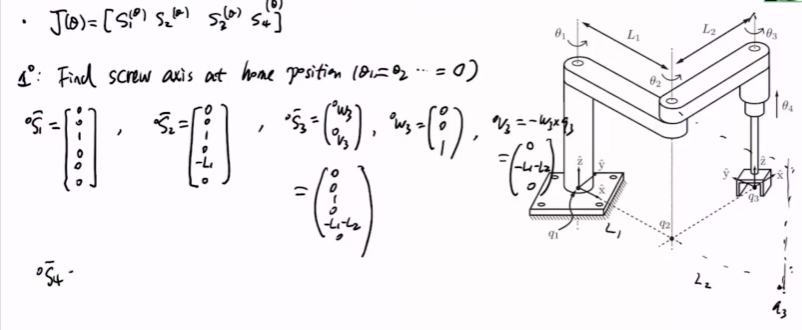 · J(θ) = [S₁(θ) S₂(θ) S₃(θ) S₄(θ)]
1°: Find screw axis at home position (θ₁=θ₂ ⋯ = 0)
⁰S̄₁ = [0 0 1 0 0 0], ⁰S̄₂ = [0 0 1 0 -L₁ 0], ⁰S̄₃ = (⁰w₃ ⁰v₃), ⁰w₃ = (0 0 1), ⁰v₃ = -w₃×q₃
= (0 -L₁-L₂ 0)
= (0 0 1 0 -L₁-L₂ 0)
⁰S̄₄ -
θ₁
L₁
L₂
θ₃
θ₂
θ₄
ẑ
ŷ
x̂
q₁
L₁
q₂
ẑ
ŷ
x̂
q₃
L₂
q₃